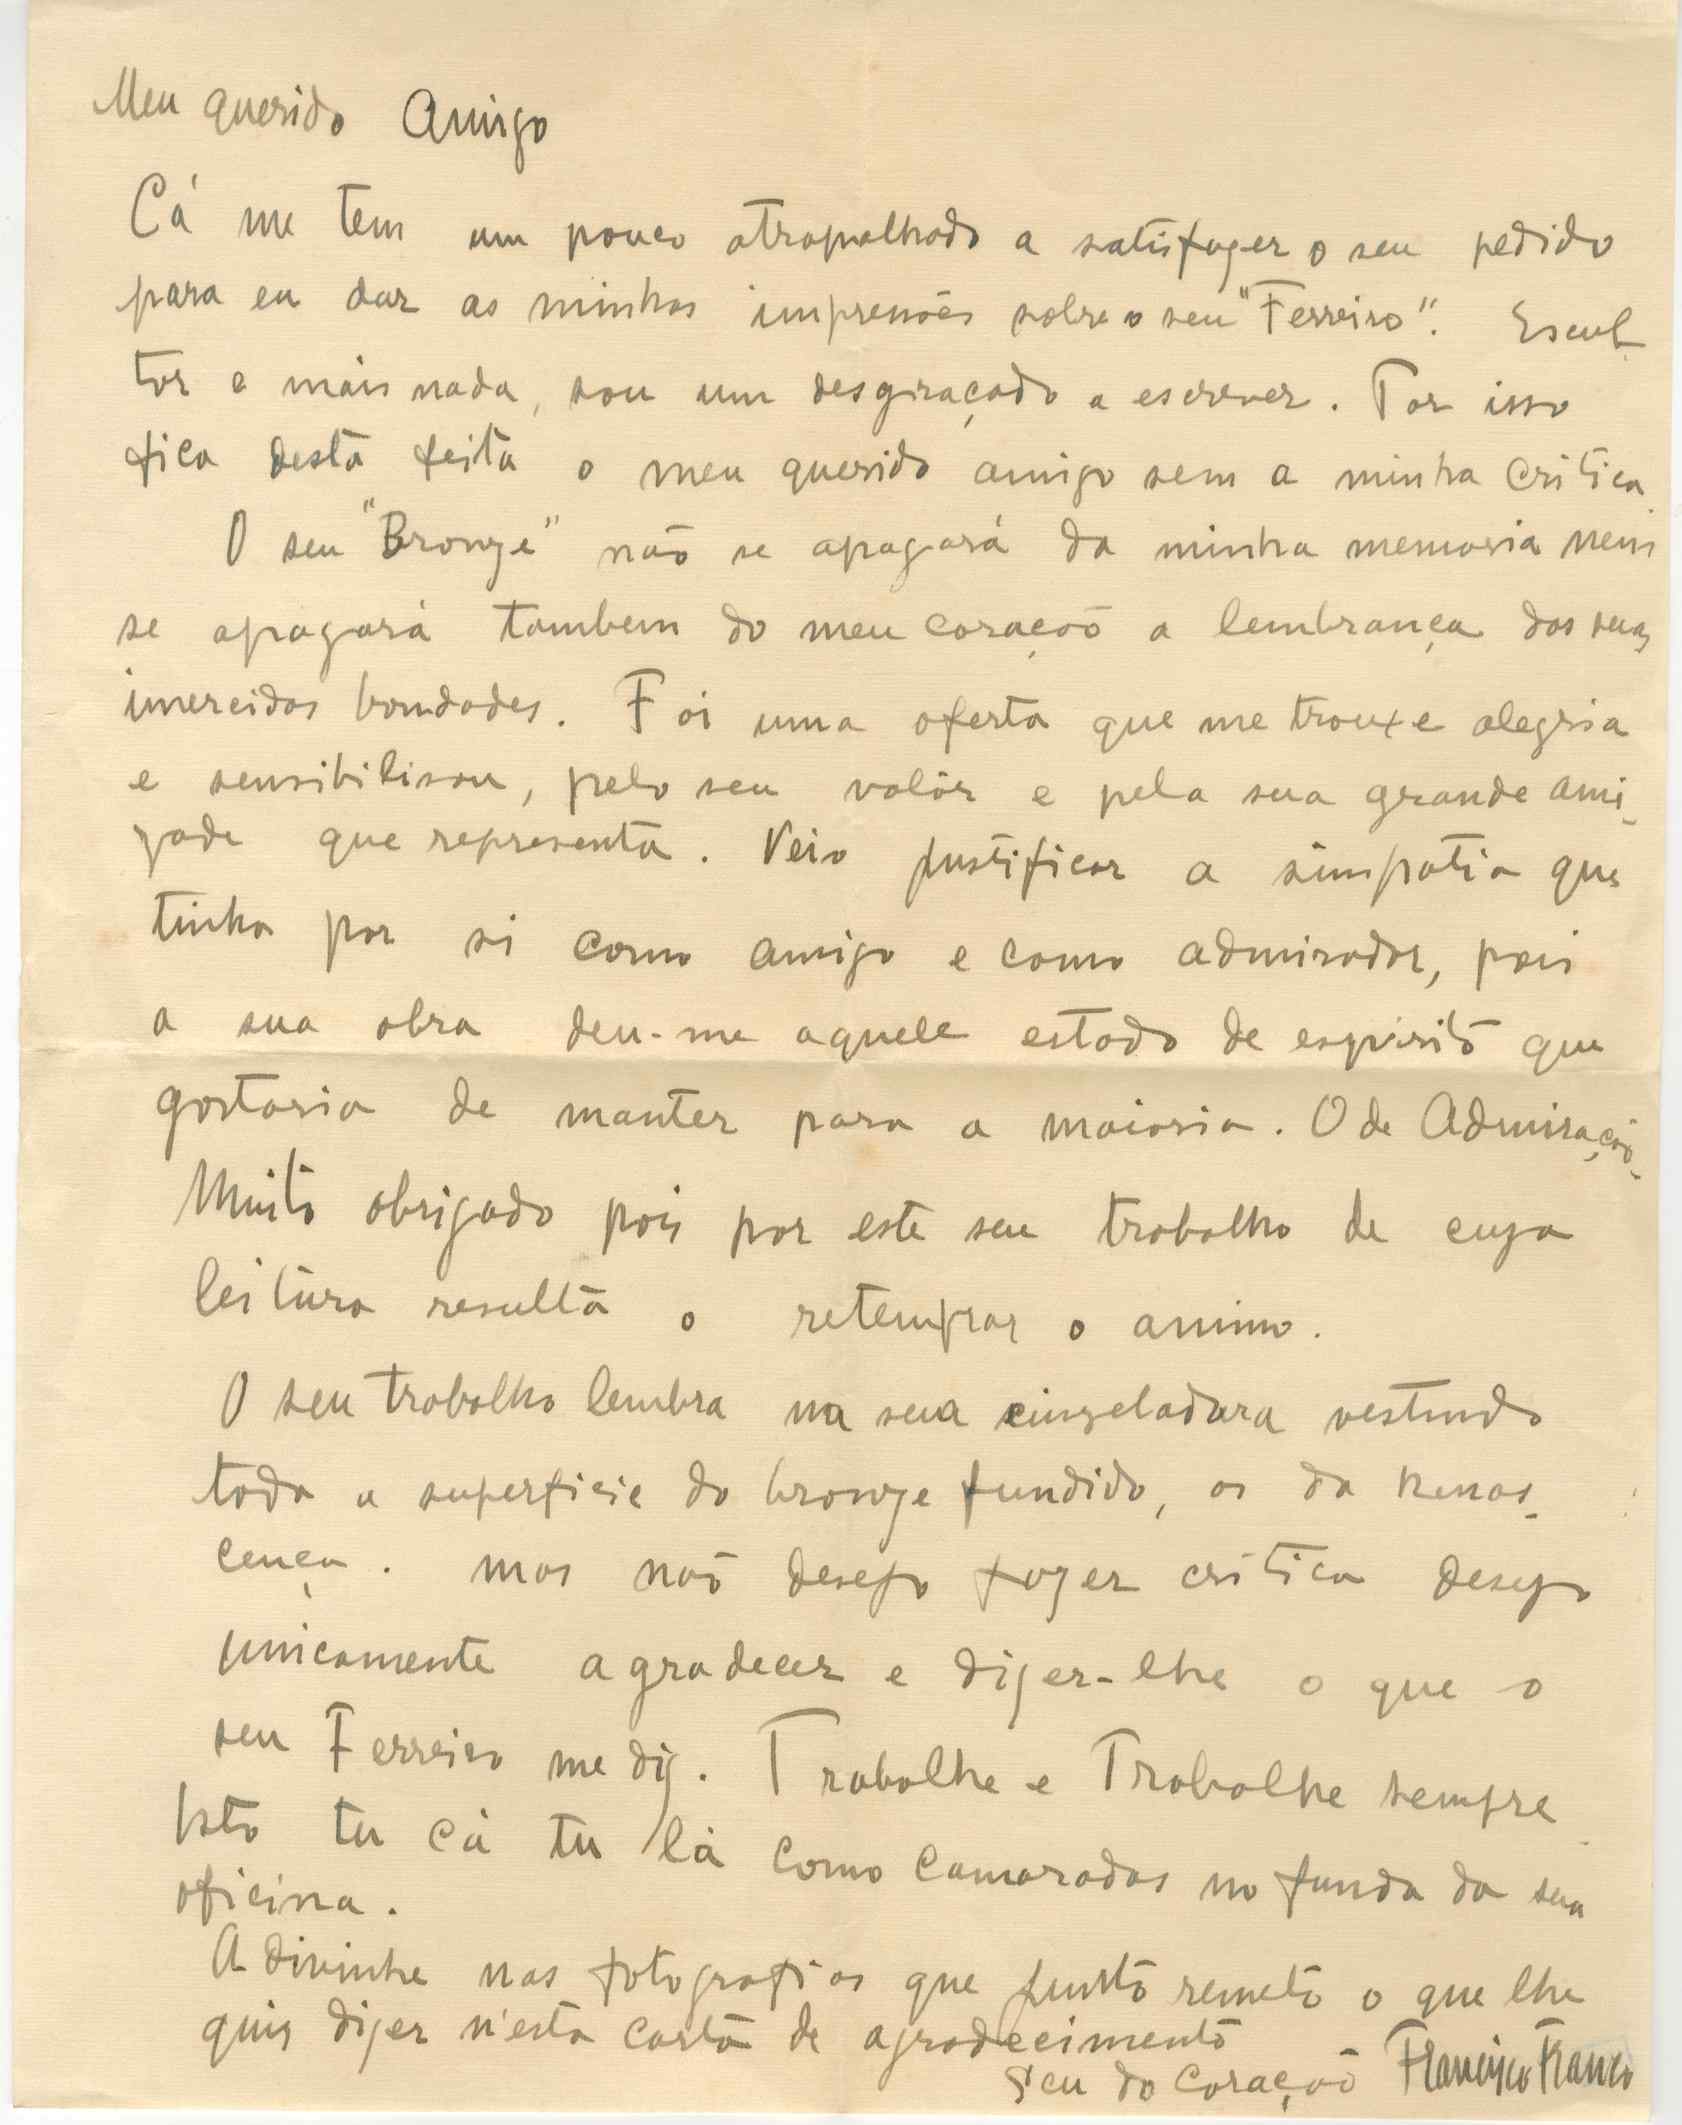 Meu querido Amigo
Cá me tem um pouco atrapalhado a satisfazer o seu pedido
para eu dar as minhas impresões sobre o seu "Ferreiro". Escul-
tor e mais nada, sou um desgraçado a escrever. Por isso
fica desta feita o meu querido amigo sem a minha critica
O seu "Bronze" não se apagará da minha memoria nem
se apagará tambem do meu coração a lembrança das suas
imerecidas bondades. Foi uma oferta que me trouxe alegria
e sensibilisou, pelo seu valôr e pela sua grande ami-
zade que representa. Veio justificar a simpatia que
tinha por si como amigo e como admirador, pois
a sua obra deu-me aquele estado de espirito que
gostaria de manter para a maioria. O de Admiração.
Muito obrigado pois por este seu trabalho de cuja
leitura resulta o retemprar o animo.
O seu trabalho lembra na sua cinzeladura vestindo
toda a superficie do bronze fundido, os da Renas-
cença. mas não desejo fazer critica desejo
unicamente agradecer e dizer-lhe o que o
seu Ferreiro me diz. Trabalhe e Trabalhe sempre
Isto tu cá tu lá como camaradas no funda da sua
oficina.
Adivinhe nas fotografias que junto remeto o que lhe
quis dizer n'esta carta de agradecimento
Seu do coração Francisco Franco